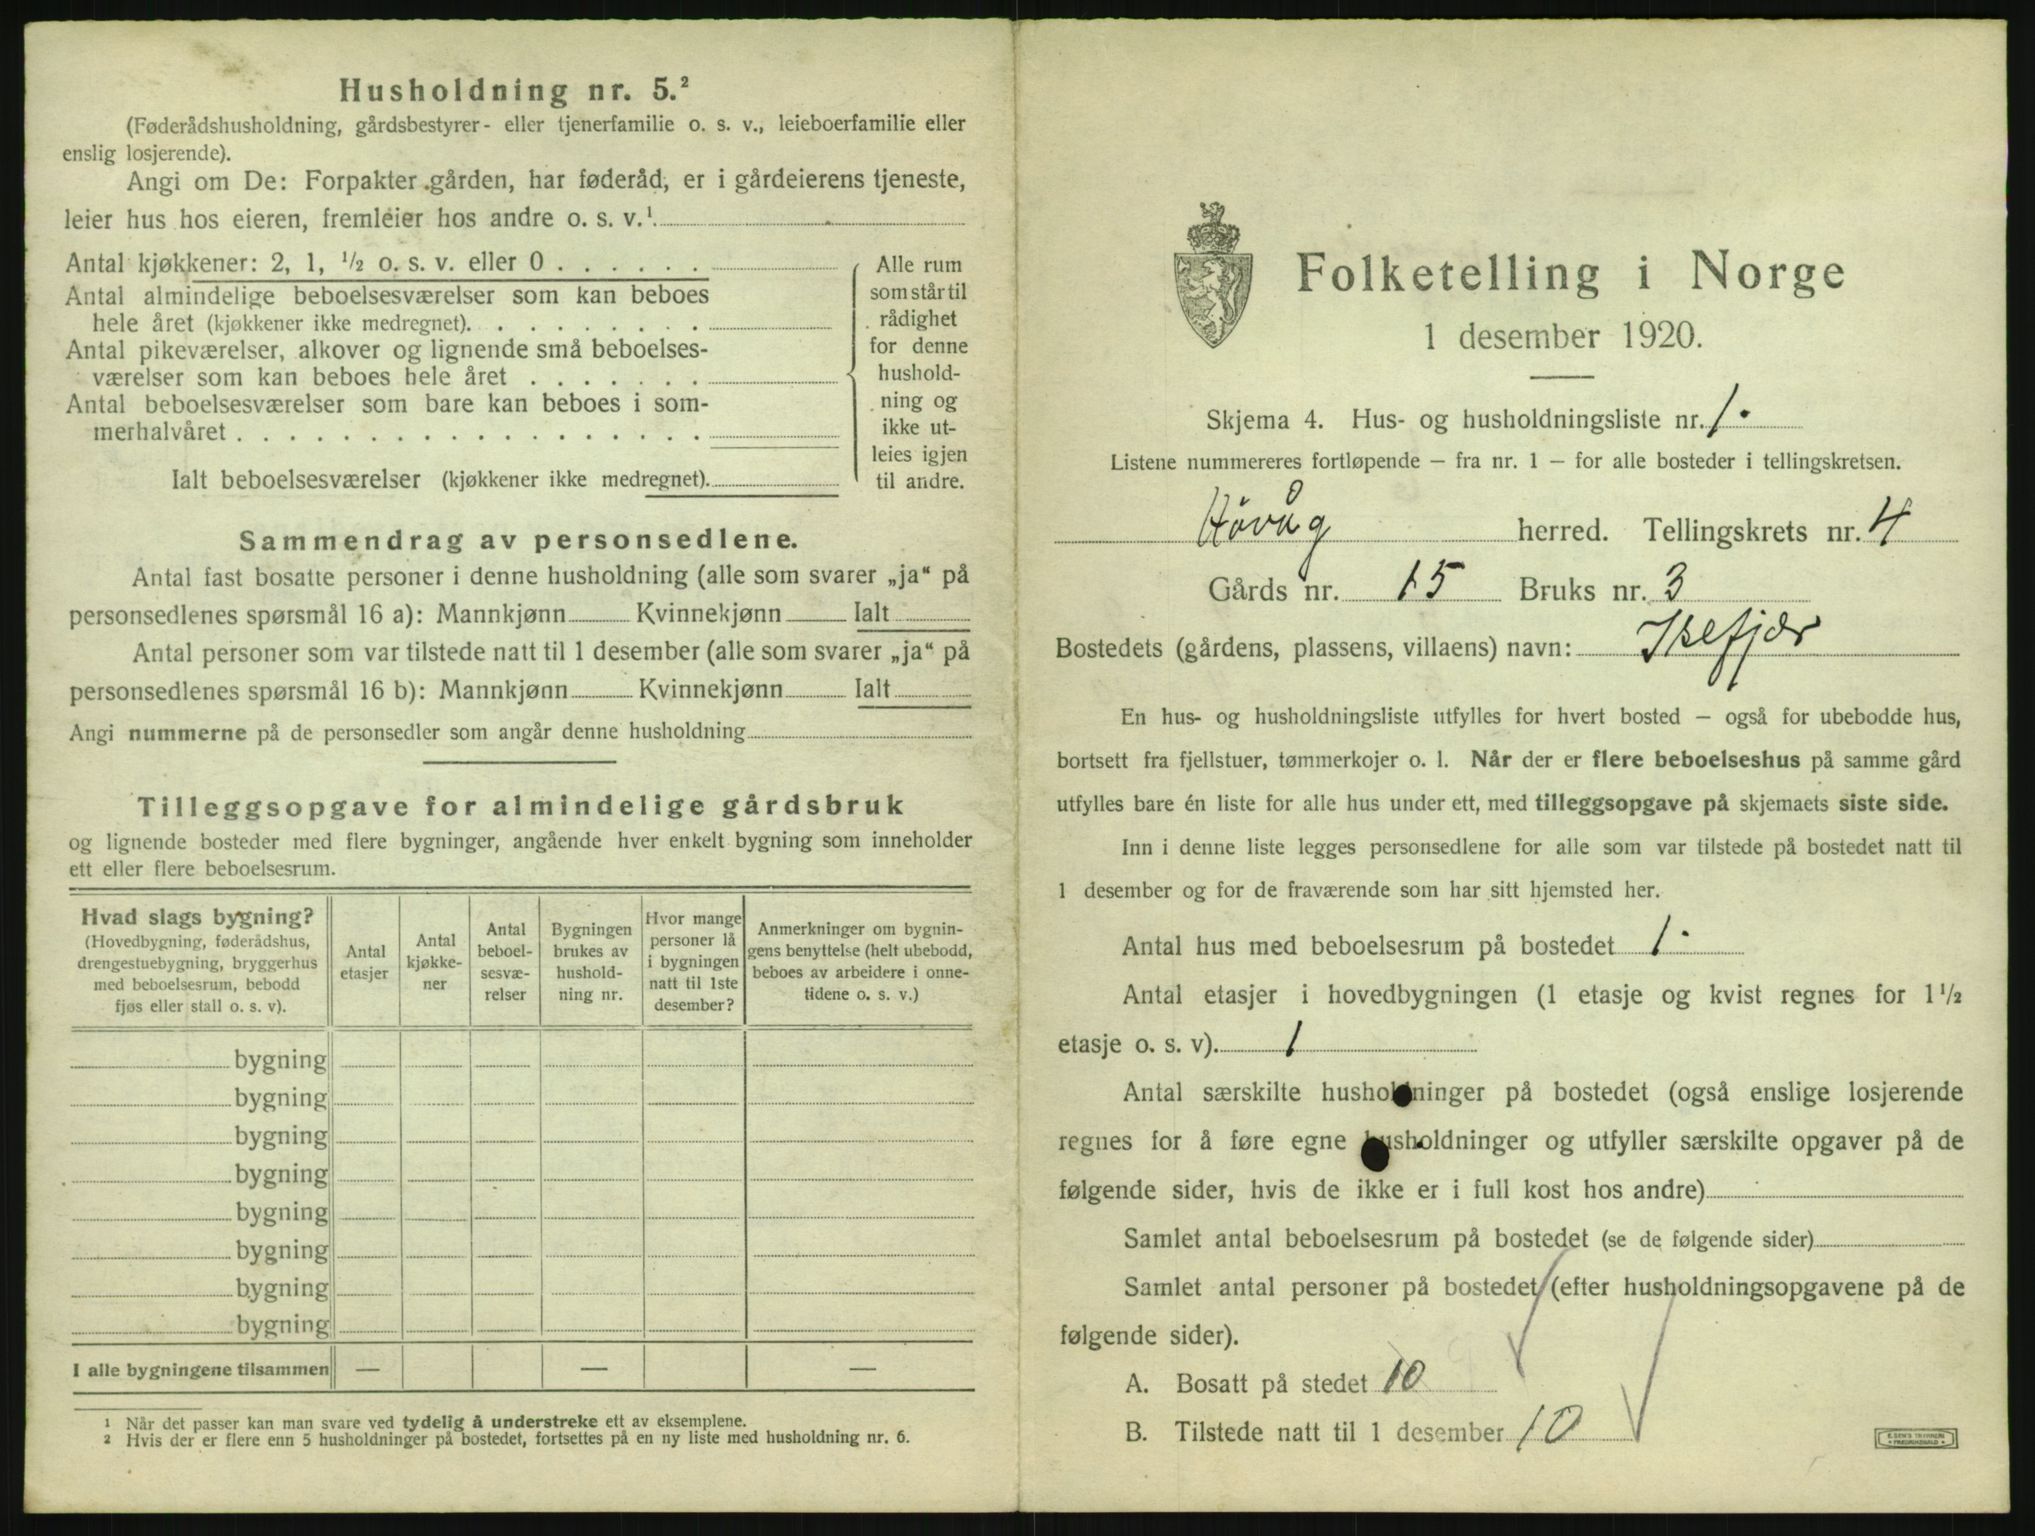 Husholdning nr. 5.²
(Føderådshusholdning, gårdsbestyrer- eller tjenerfamilie o. s. v., leieboerfamilie eller
enslig losjerende).
Angi om De: Forpakter gården, har føderåd, er i gårdeierens tjeneste,
leier hus hos eieren, fremleier hos andre o. s. v.¹
Antal kjøkkener: 2, 1, ½ o. s. v. eller 0 . . . . . .
Antal almindelige beboelsesværelser som kan beboes
hele året (kjøkkener ikke medregnet). . . . . . . . .
Antal pikeværelser, alkover og lignende små beboelses-
værelser som kan beboes hele året . . . . . . .
Antal beboelsesværelser som bare kan beboes i som-
merhalvåret . . . . . . . . . . . . . . . . . .
Ialt beboelsesværelser (kjøkkener ikke medregnet).
Alle rum
som står til
rådighet
for denne
hushold-
ning og
ikke ut-
leies igjen
til andre.
Sammendrag av personsedlene.
Antal fast bosatte personer i denne husholdning (alle som svarer „ja“ på
personsedlenes spørsmål 16 a): Mannkjønn Kvinnekjønn Ialt
Antal personer som var tilstede natt til 1 desember (alle som svarer „ja“ på
personsedlenes spørsmål 16 b): Mannkjønn Kvinnekjønn Ialt
Angi nummerne på de personsedler som angår denne husholdning
Tilleggsopgave for almindelige gårdsbruk
og lignende bosteder med flere bygninger, angående hver enkelt bygning som inneholder
ett eller flere beboelsesrum.
Hvad slags bygning?
(Hovedbygning, føderådshus,
drengestuebygning, bryggerhus
med beboelsesrum, bebodd
fjøs eller stall o. s. v).
Antal
etasjer
Antal
kjøkke-
ner
Antal
beboel-
sesvæ-
relser
Bygningen
brukes av
hushold-
ning nr.
Hvor mange
personer lå
i bygningen
natt til 1ste
desember?
Anmerkninger om bygnin-
gens benyttelse (helt ubebodd,
beboes av arbeidere i onne-
tidene o. s. v.)
bygning
bygning
bygning
bygning
bygning
bygning
bygning
bygning
I alle bygningene tilsammen — — —
¹ Når det passer kan man svare ved tydelig å understreke ett av eksemplene.
² Hvis der er flere enn 5 husholdninger på bostedet, fortsettes på en ny liste med husholdning nr. 6.
Folketelling i Norge
1 desember 1920.
Skjema 4. Hus- og husholdningsliste nr. 1.
Listene nummereres fortløpende — fra nr. 1 — for alle bosteder i tellingskretsen.
Høvåg herred. Tellingskrets nr. 4
Gårds nr. 15 Bruks nr. 3
Bostedets (gårdens, plassens, villaens) navn: Isefjær
En hus- og husholdningsliste utfylles for hvert bosted — også for ubebodde hus,
bortsett fra fjellstuer, tømmerkojer o. l. Når der er flere beboelseshus på samme gård
utfylles bare én liste for alle hus under ett, med tilleggsopgave på skjemaets siste side.
Inn i denne liste legges personsedlene for alle som var tilstede på bostedet natt til
1 desember og for de fraværende som har sitt hjemsted her.
Antal hus med beboelsesrum på bostedet 1.
Antal etasjer i hovedbygningen (1 etasje og kvist regnes for 1½
etasje o. s. v). 1
Antal særskilte husholdninger på bostedet (også enslige losjerende
regnes for å føre egne husholdninger og utfyller særskilte opgaver på de
følgende sider, hvis de ikke er i full kost hos andre)
Samlet antal beboelsesrum på bostedet (se de følgende sider)
Samlet antal personer på bostedet (efter husholdningsopgavene på de
følgende sider).
A. Bosatt på stedet 10 9
B. Tilstede natt til 1 desember 10